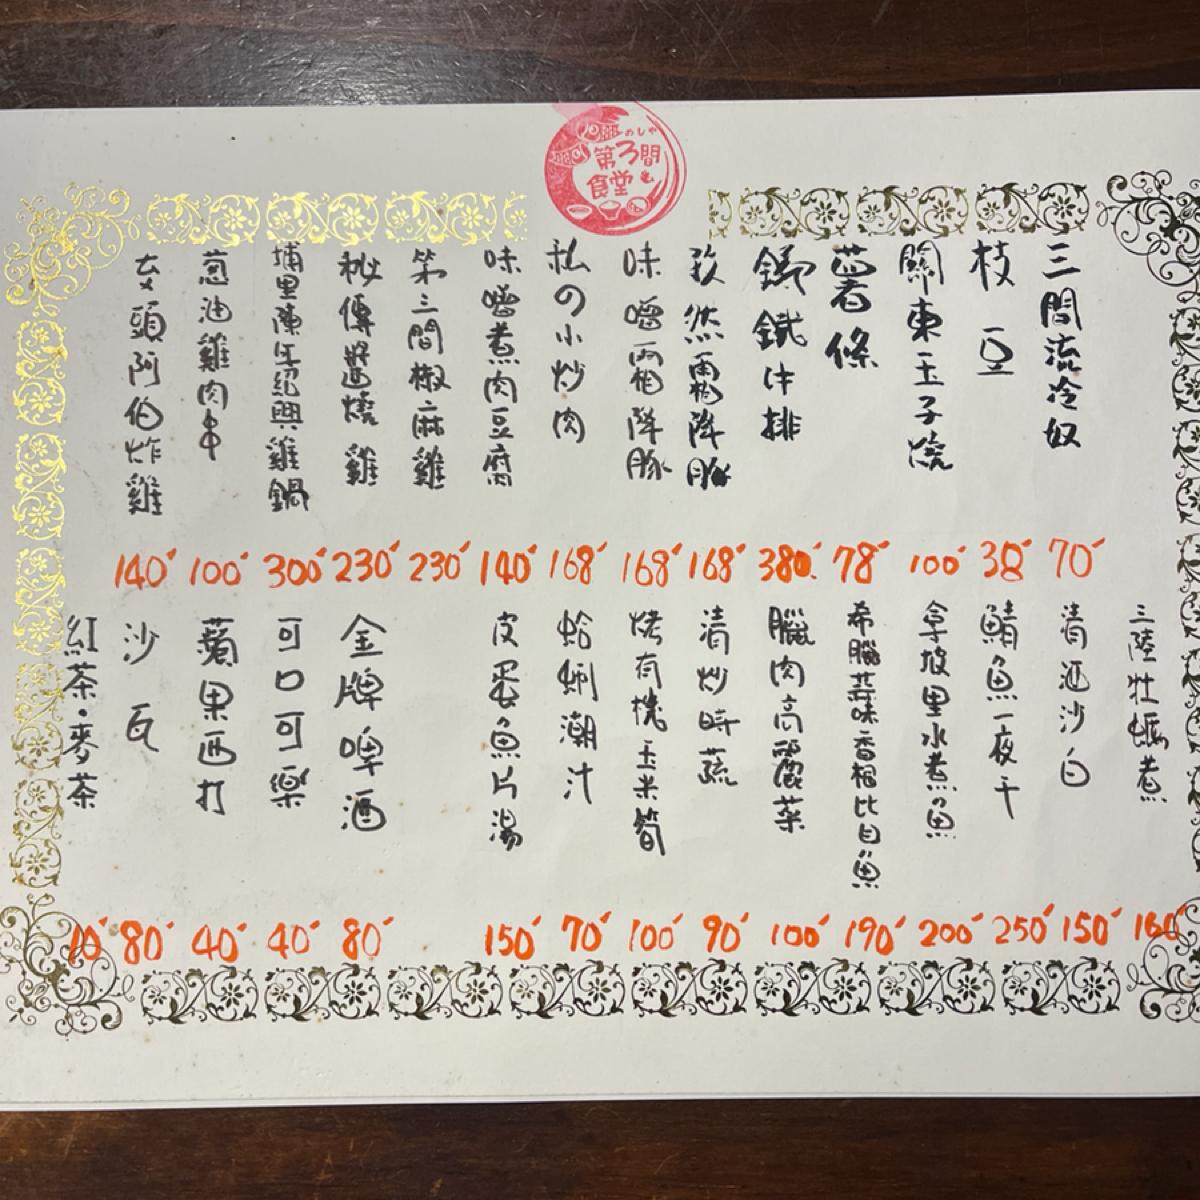 めしや
第3間
食堂
三間流冷奴 70
枝豆 38
關東玉子燒 100
薯條 78
鑄鐵牛排 380
孜然霜降豚 168
味噌霜降豚 168
私の小炒肉 168
味噌煮肉豆腐 140
第三間椒麻雞 230
秘傳醬燒雞 230
埔里陳年紹興雞鍋 300
蔥油雞肉串 100
頭阿伯炸雞 140
三陸牡蠣煮 160
清酒沙白 150
鯖魚一夜干 250
拿坡里水煮魚 200
希臘蒜味香椒比目魚 190
臘肉高麗菜 100
清炒時蔬 90
烤有機玉米筍 100
蛤蜊潮汁 70
皮蛋魚片湯 150
金牌啤酒 80
可口可樂 40
蘋果西打 40
沙瓦 80
紅茶·麥茶 10